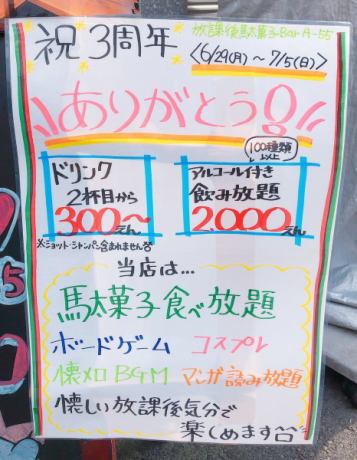 放課後馬太菓子Bar A-55
祝3周年
〈6/29(月)～7/5(日)〉
ありがとう!!
ドリンク
2杯目から
300～えん
100種類以上
アルコール付き
飲み放題
2,000えん
※ショット・シャンパン含まれません
当店は…
馬太菓子食べ放題
ボードゲーム コスプレ
懐メロBGM マンガ読み放題
懐しい放課後気分で
楽しめます